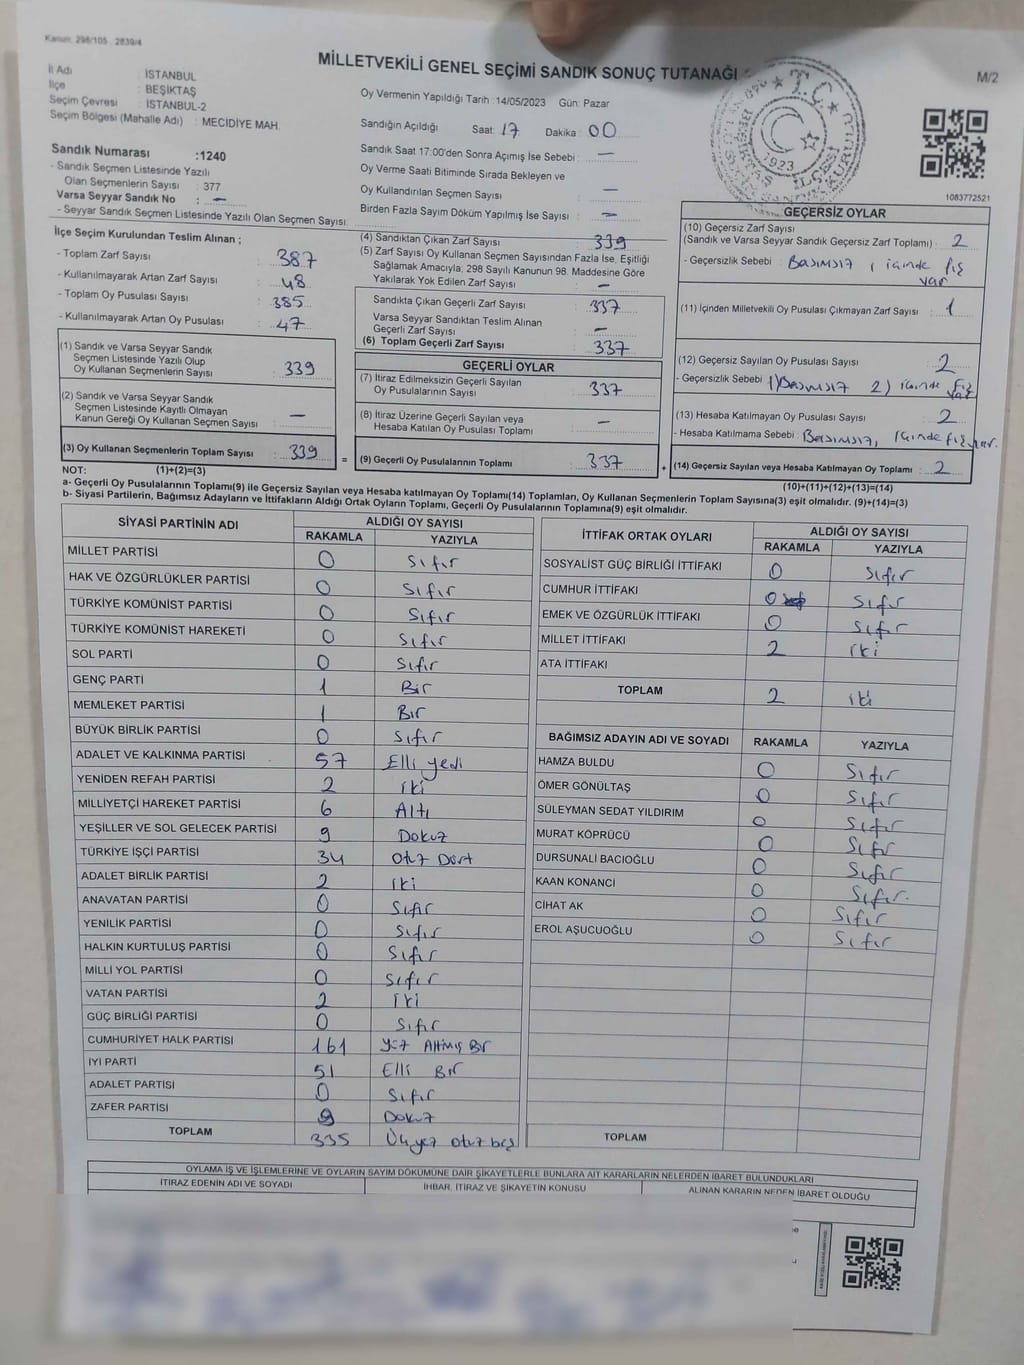 Kanun: 298/105 2839/4
MİLLETVEKİLİ GENEL SEÇİMİ SANDIK SONUÇ TUTANAĞI
M/2
İl Adı : İSTANBUL
İlçe : BEŞİKTAŞ
Seçim Çevresi : İSTANBUL-2
Seçim Bölgesi (Mahalle Adı) : MECİDİYE MAH.
Sandık Numarası :1240
- Sandık Seçmen Listesinde Yazılı
Olan Seçmenlerin Sayısı : 377
Varsa Seyyar Sandık No : —
- Seyyar Sandık Seçmen Listesinde Yazılı Olan Seçmen Sayısı:
Oy Vermenin Yapıldığı Tarih :14/05/2023 Gün: Pazar
Sandığın Açıldığı Saat: 17 Dakika : 00
Sandık Saat 17:00'den Sonra Açımış İse Sebebi : —
Oy Verme Saati Bitiminde Sırada Bekleyen ve
Oy Kullandırılan Seçmen Sayısı : —
Birden Fazla Sayım Döküm Yapılmış İse Sayısı : —
T.C.
1923
1083772521
İlçe Seçim Kurulundan Teslim Alınan ;
- Toplam Zarf Sayısı : 387
- Kullanılmayarak Artan Zarf Sayısı : 48
- Toplam Oy Pusulası Sayısı : 385
- Kullanılmayarak Artan Oy Pusulası : 47
(1) Sandık ve Varsa Seyyar Sandık
Seçmen Listesinde Yazılı Olup
Oy Kullanan Seçmenlerin Sayısı : 339
(2) Sandık ve Varsa Seyyar Sandık
Seçmen Listesinde Kayıtlı Olmayan
Kanun Gereği Oy Kullanan Seçmen Sayısı : —
(3) Oy Kullanan Seçmenlerin Toplam Sayısı : 339
(4) Sandıktan Çıkan Zarf Sayısı : 339
(5) Zarf Sayısı Oy Kullanan Seçmen Sayısından Fazla İse, Eşitliği
Sağlamak Amacıyla, 298 Sayılı Kanunun 98. Maddesine Göre
Yakılarak Yok Edilen Zarf Sayısı : —
Sandıkta Çıkan Geçerli Zarf Sayısı : 337
Varsa Seyyar Sandıktan Teslim Alınan
Geçerli Zarf Sayısı : —
(6) Toplam Geçerli Zarf Sayısı : 337
GEÇERLİ OYLAR
(7) İtiraz Edilmeksizin Geçerli Sayılan
Oy Pusulalarının Sayısı : 337
(8) İtiraz Üzerine Geçerli Sayılan veya
Hesaba Katılan Oy Pusulası Toplamı : —
= (9) Geçerli Oy Pusulalarının Toplamı : 337
GEÇERSİZ OYLAR
(10) Geçersiz Zarf Sayısı
(Sandık ve Varsa Seyyar Sandık Geçersiz Zarf Toplamı) : 2
- Geçersizlik Sebebi : Basımsız, içinde fiş
var
(11) İçinden Milletvekili Oy Pusulası Çıkmayan Zarf Sayısı : 1
(12) Geçersiz Sayılan Oy Pusulası Sayısı : 2
- Geçersizlik Sebebi 1) Basımsız 2) içinde fiş
var
(13) Hesaba Katılmayan Oy Pusulası Sayısı : 2
- Hesaba Katılmama Sebebi : Basımsız, içinde fiş var.
+ (14) Geçersiz Sayılan veya Hesaba Katılmayan Oy Toplamı : 2
NOT: (1)+(2)=(3)
(10)+(11)+(12)+(13)=(14)
a- Geçerli Oy Pusulalarının Toplamı(9) ile Geçersiz Sayılan veya Hesaba katılmayan Oy Toplamı(14) Toplamları, Oy Kullanan Seçmenlerin Toplam Sayısına(3) eşit olmalıdır. (9)+(14)=(3)
b- Siyasi Partilerin, Bağımsız Adayların ve İttifakların Aldığı Ortak Oyların Toplamı, Geçerli Oy Pusulalarının Toplamına(9) eşit olmalıdır.
SİYASİ PARTİNİN ADI ALDIĞI OY SAYISI
RAKAMLA YAZIYLA
MİLLET PARTİSİ 0 Sıfır
HAK VE ÖZGÜRLÜKLER PARTİSİ 0 Sıfır
TÜRKİYE KOMÜNİST PARTİSİ 0 Sıfır
TÜRKİYE KOMÜNİST HAREKETİ 0 Sıfır
SOL PARTİ 0 Sıfır
GENÇ PARTİ 1 Bir
MEMLEKET PARTİSİ 1 Bir
BÜYÜK BİRLİK PARTİSİ 0 Sıfır
ADALET VE KALKINMA PARTİSİ 57 Elli yedi
YENİDEN REFAH PARTİSİ 2 iki
MİLLİYETÇİ HAREKET PARTİSİ 6 Altı
YEŞİLLER VE SOL GELECEK PARTİSİ 9 Dokuz
TÜRKİYE İŞÇİ PARTİSİ 34 Otuz Dört
ADALET BİRLİK PARTİSİ 2 iki
ANAVATAN PARTİSİ 0 Sıfır
YENİLİK PARTİSİ 0 Sıfır
HALKIN KURTULUŞ PARTİSİ 0 Sıfır
MİLLİ YOL PARTİSİ 0 Sıfır
VATAN PARTİSİ 2 iki
GÜÇ BİRLİĞİ PARTİSİ 0 Sıfır
CUMHURİYET HALK PARTİSİ 161 Yüz Altmış Bir
İYİ PARTİ 51 Elli Bir
ADALET PARTİSİ 0 Sıfır
ZAFER PARTİSİ 9 Dokuz
TOPLAM 335 Üçyüz otuz beş
İTTİFAK ORTAK OYLARI ALDIĞI OY SAYISI
RAKAMLA YAZIYLA
SOSYALİST GÜÇ BİRLİĞİ İTTİFAKI 0 Sıfır
CUMHUR İTTİFAKI 0 Sıfır
EMEK VE ÖZGÜRLÜK İTTİFAKI 0 Sıfır
MİLLET İTTİFAKI 2 iki
ATA İTTİFAKI
TOPLAM 2 iki
BAĞIMSIZ ADAYIN ADI VE SOYADI RAKAMLA YAZIYLA
HAMZA BULDU 0 Sıfır
ÖMER GÖNÜLTAŞ 0 Sıfır
SÜLEYMAN SEDAT YILDIRIM 0 Sıfır
MURAT KÖPRÜCÜ 0 Sıfır
DURSUNALİ BACIOĞLU 0 Sıfır
KAAN KONANCI 0 Sıfır.
CİHAT AK 0 Sıfır
EROL AŞUCUOĞLU 0 Sıfır
TOPLAM
OYLAMA İŞ VE İŞLEMLERİNE VE OYLARIN SAYIM DÖKÜMÜNE DAİR ŞİKAYETLERLE BUNLARA AİT KARARLARIN NELERDEN İBARET BULUNDUKLARI
İTİRAZ EDENİN ADI VE SOYADI İHBAR, İTİRAZ VE ŞİKAYETİN KONUSU ALINAN KARARIN NEDEN İBARET OLDUĞU